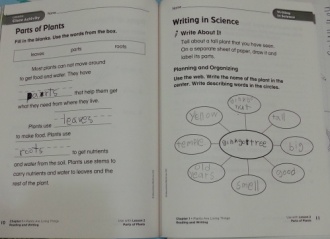 Parts of Plants
Fill in the blanks. Use the words from the box.
leaves parts roots
Most plants can not move around
to get food and water. They have
parts that help them get
what they need from where they live.
Plants use leaves
to make food. Plants use
roots to get nutrients
and water from the soil. Plants use stems to
carry nutrients and water to leaves and the
rest of the plant.
Writing in Science
Write About It
Tell about a tall plant that you have seen.
On a separate sheet of paper, draw it and
label its parts.
Planning and Organizing
Use the web. Write the name of the plant in the
center. Write describing words in the circles.
yellow
tall
ginkgo tree
big
old
years
smell
good
Reading and Writing
Parts of Plants
Reading and Writing
Parts of Plants
11